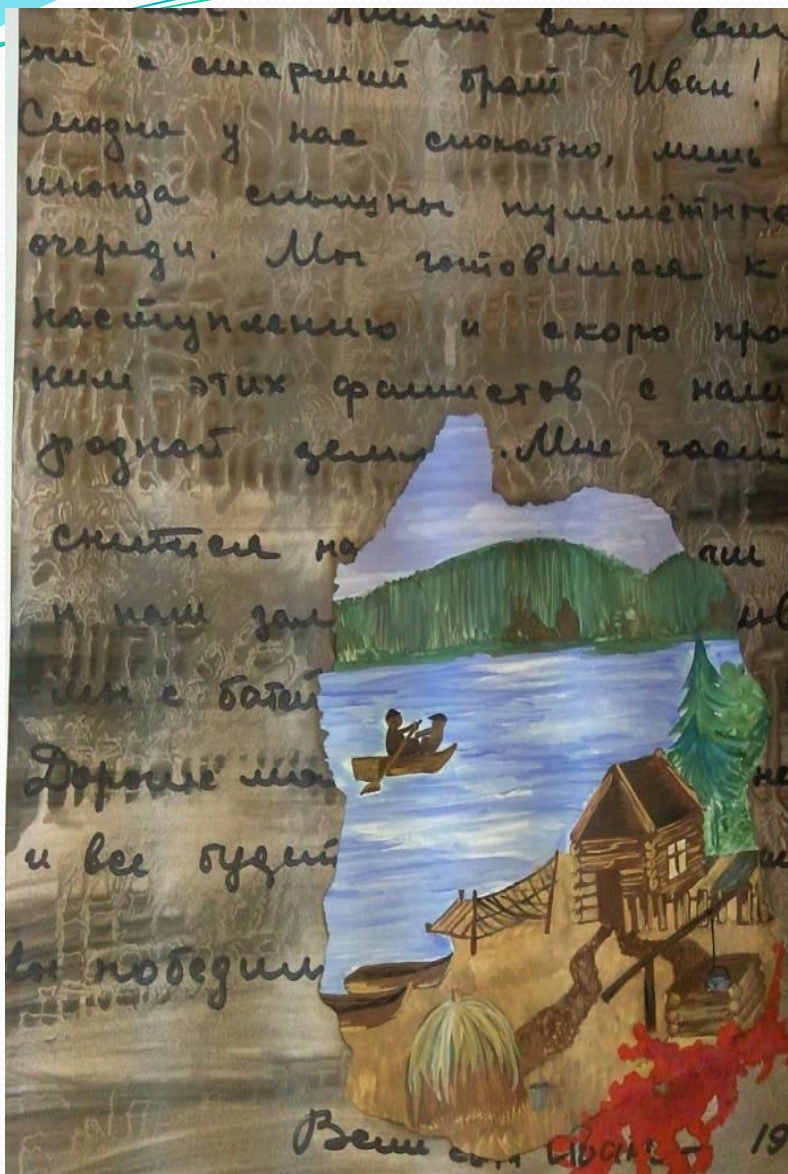 Пишет вам ваш
сын и старший брат Иван!
Сегодня у нас спокойно, лишь
иногда слышны пулемётные
очереди. Мы готовимся к
наступлению и скоро про
ним этих фашистов с наш
родной земл . Мне част
снится на аш
и наш зал ив
мы с батей
Дорогие мо не
и все будет
Мы победим
Ваш сын Иван - 19